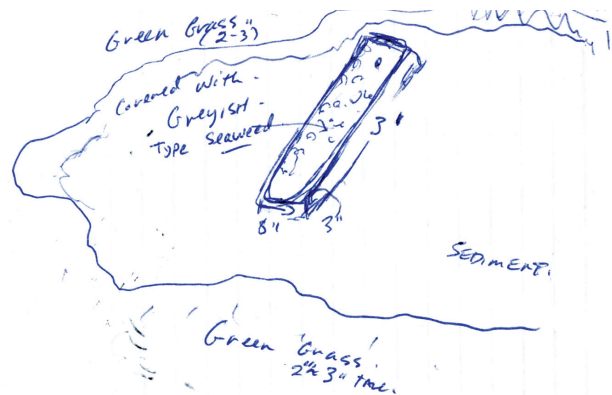 Green Grass
(2-3)"
Covered with
Greyish
Type Seaweed
3'
8" 3"
SEDIMENT.
Green Grass.
2" 3"